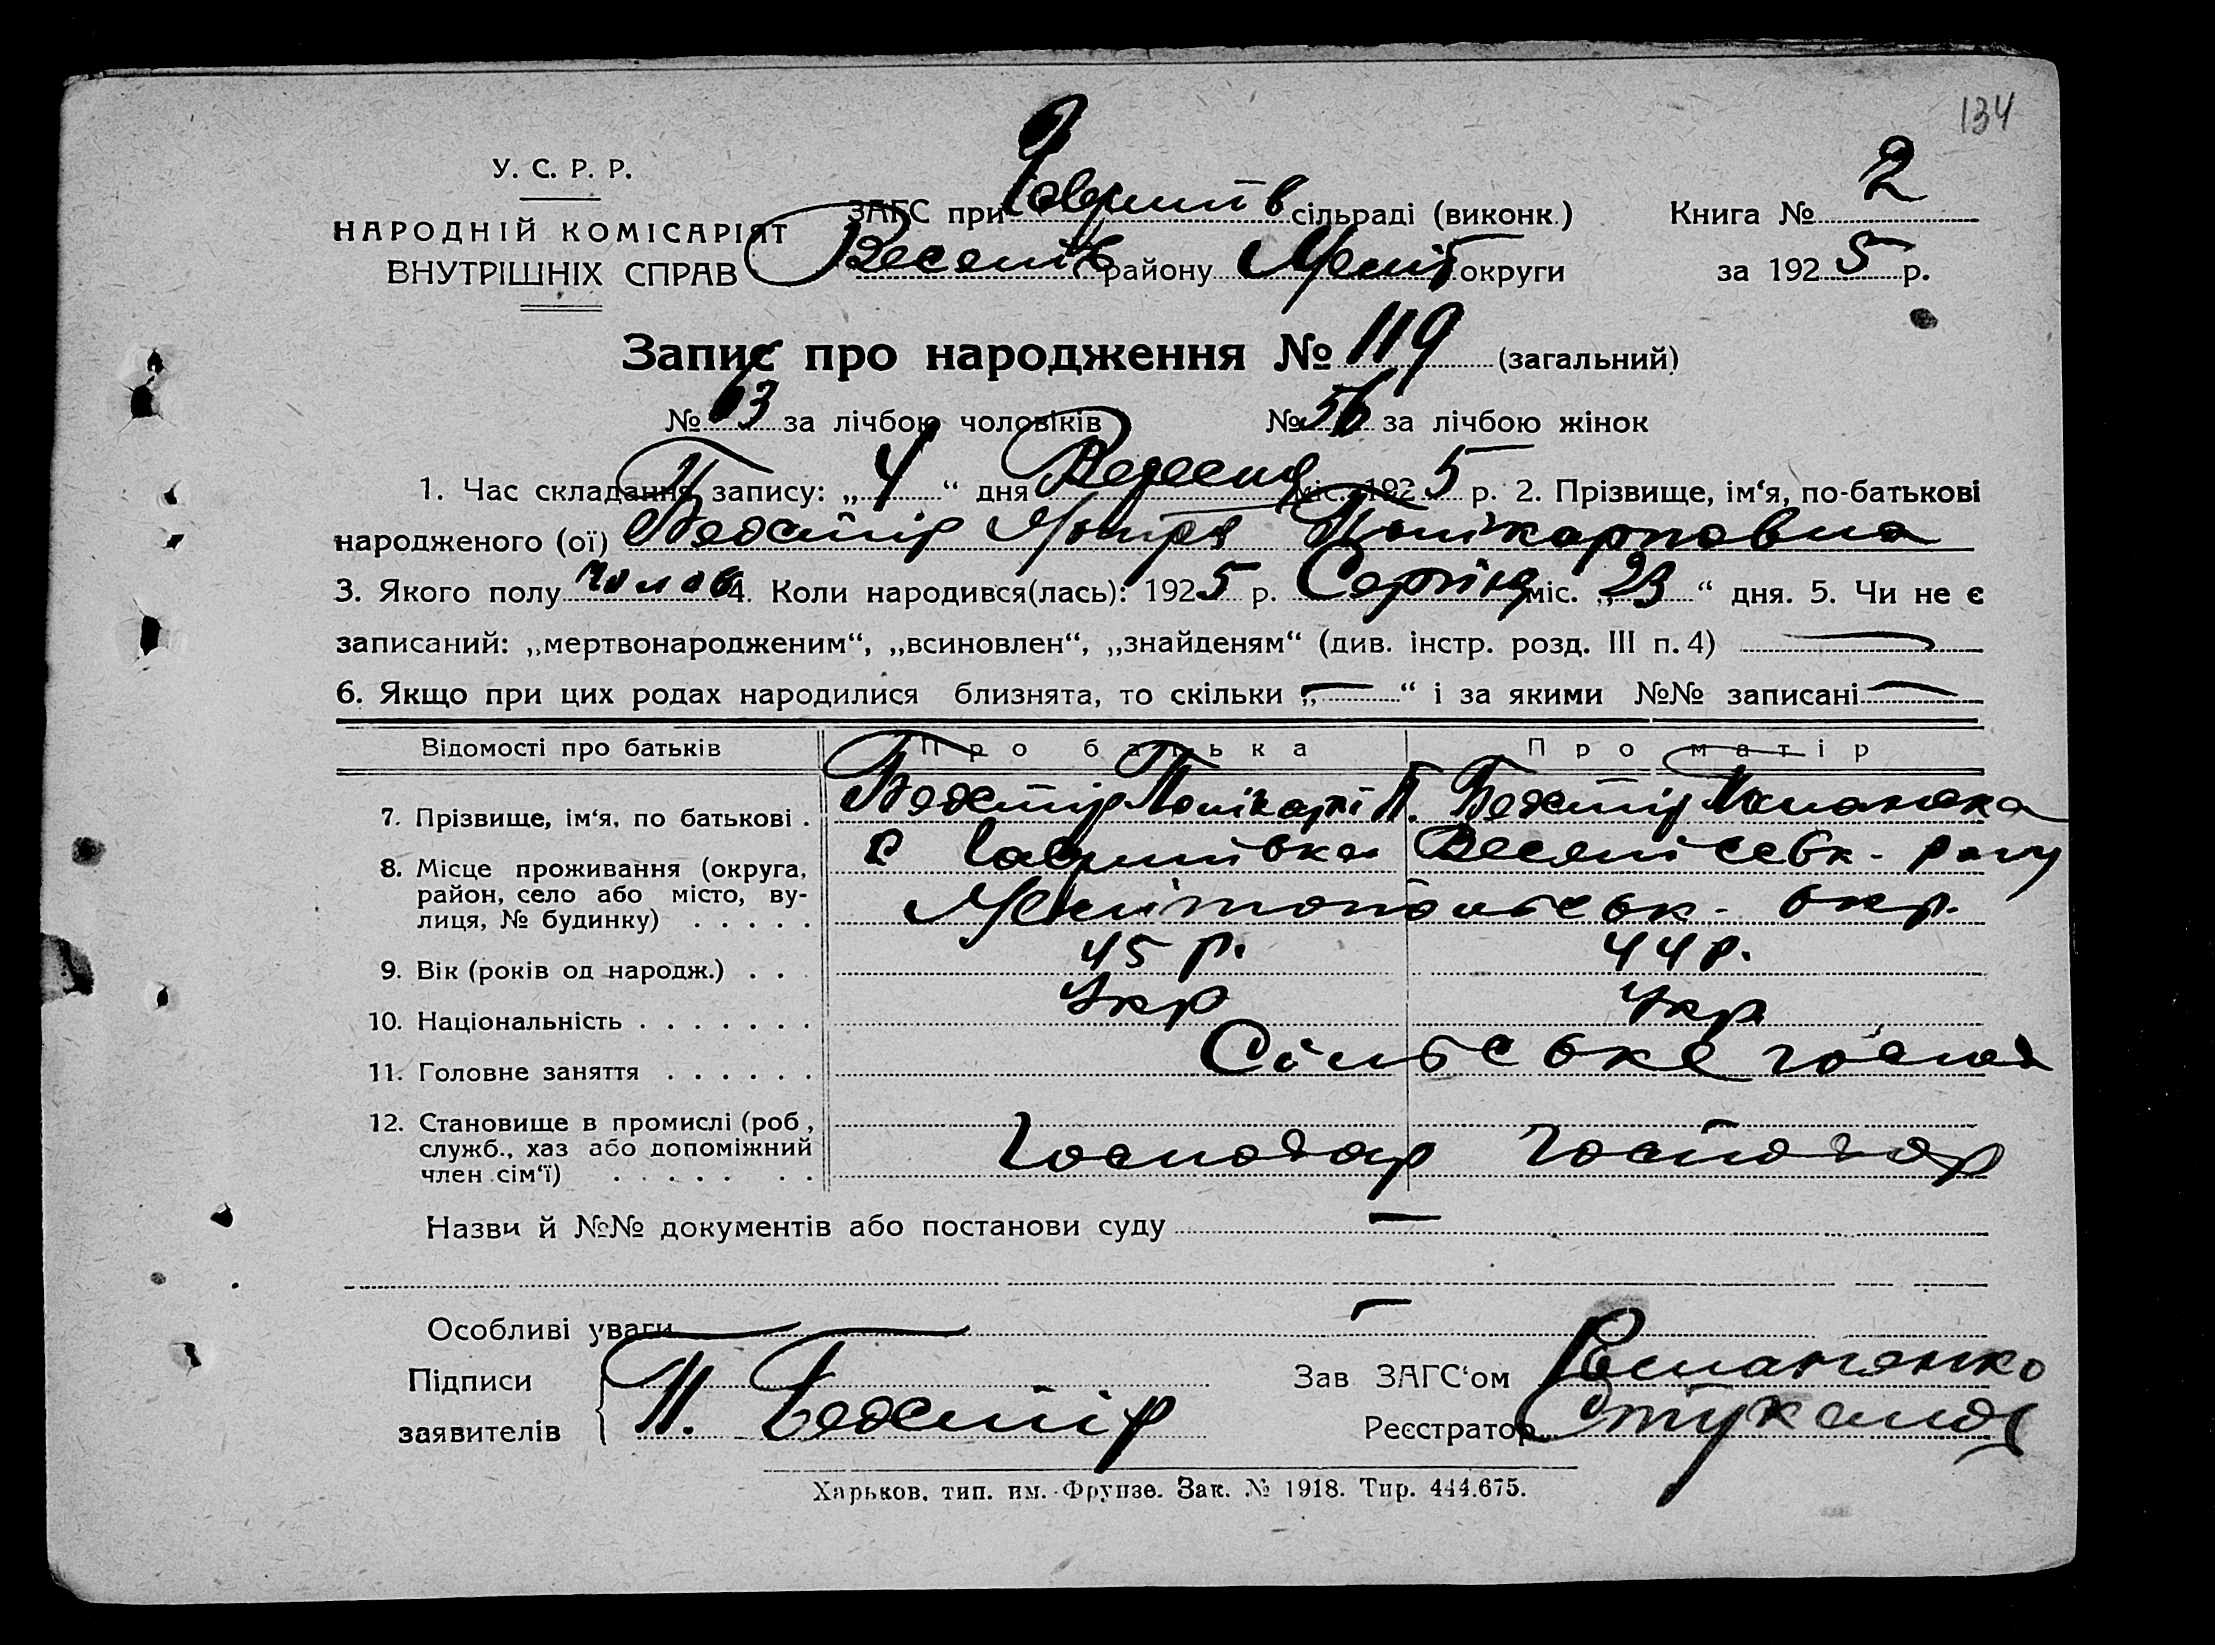 134
У. С. Р. Р.
НАРОДНІЙ КОМІСАРІЯТ
ВНУТРІШНІХ СПРАВ
ЗАГС при Гаврилів сільраді (виконк.) Книга № 2
Веселів району Меліт округи за 1925 р.
Запис про народження № 119 (загальний)
№ 63 за лічбою чоловіків № 56 за лічбою жінок
1. Час складання запису: „4“ дня Вересня міс. 1925 р. 2. Прізвище, ім‘я, по-батькові
народженого (ої) Полікарповна
3. Якого полу чолов 4. Коли народився(лась): 1925 р. Серпня міс. „23“ дня. 5. Чи не є
записаний: „мертвонародженим“, „всиновлен“, „знайденям“ (див. інстр. розд. III п. 4) —
6. Якщо при цих родах народилися близнята, то скільки „—“ і за якими №№ записані —
Відомості про батьків Про батька Про матір
7. Прізвище, ім‘я, по батькові . Полікарп П.
8. Місце проживання (округа, с Гаврилівка Веселівськ. рогу
район, село або місто, ву-
лиця, № будинку) . . . . . Мелітопольськ. окр.
9. Вік (років од народж.) . . . 45 р. 44 р.
10. Національність . . . . . . . Укр Укр.
11. Головне заняття . . . . . . Сільське
12. Становище в промислі (роб.,
служб., хаз або допоміжний Господар Господар
член сім‘ї) . . . . . . .
Назви й №№ документів або постанови суду —
Особливі уваги —
Підписи Зав ЗАГС‘ом
заявителів П. Реєстратор
Харьков, тип. им. Фрунзе. Зак. № 1918. Тир. 444.675.